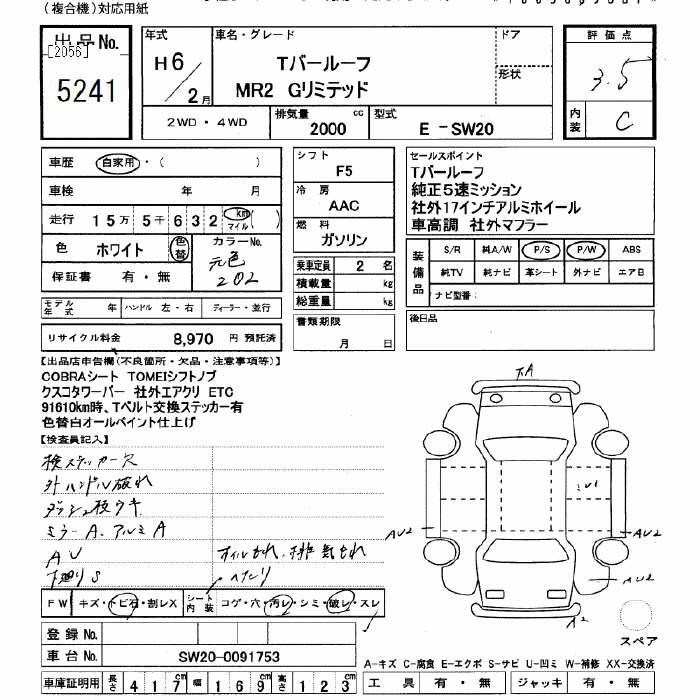 (複合機)対応用紙
出品No.
[2056]
5241
年式
H6/2月
車名・グレード
Tバールーフ
MR2 Gリミテッド
ドア
形状
評価点
3.5
内装
C
2WD・4WD
排気量
2000
cc
型式
E-SW20
車歴
自家用・( )
車検 年 月
走行 15万5千632 km マイル ( )
色 ホワイト 色替
カラーNo.
元色
202
保証書 有・無
モデル年式 年 ハンドル 左・右 ディーラー・並行
リサイクル料金 8,970 円 預託済
シフト
F5
冷房
AAC
燃料
ガソリン
乗車定員 2 名
積載量 kg
総重量 kg
書類期限
月 日
セールスポイント
Tバールーフ
純正5速ミッション
社外17インチアルミホイール
車高調 社外マフラー
装備品
S/R 純A/W P/S P/W ABS
純TV 純ナビ 革シート 外ナビ エアB
ナビ型番:
後日品
【出品店申告欄(不良箇所・欠品・注意事項等)】
COBRAシート TOMEIシフトノブ
クスコタワーバー 社外エアクリ ETC
91610km時、Tベルト交換ステッカー有
色替白オールペイント仕上げ
【検査員記入】
検ステッカー欠
外ハンドル破れ
ダッシュ板ウキ
ミラーA、アルミA
AU
下廻りS
オイルもれ、排気もれ
ヘタリ
FW キズ・トビ石・割レX
シート内装 コゲ・穴・汚レ・シミ・破レ・スレ
登録No.
車台No. SW20-0091753
車庫証明用 長さ 417cm 幅 169cm 高さ 123cm
A
U1
AU2
AU2
AU2
A2
スペア
A-キズ C-腐食 E-エクボ S-サビ U-凹ミ W-補修 XX-交換済
工具 有・無 ジャッキ 有・無